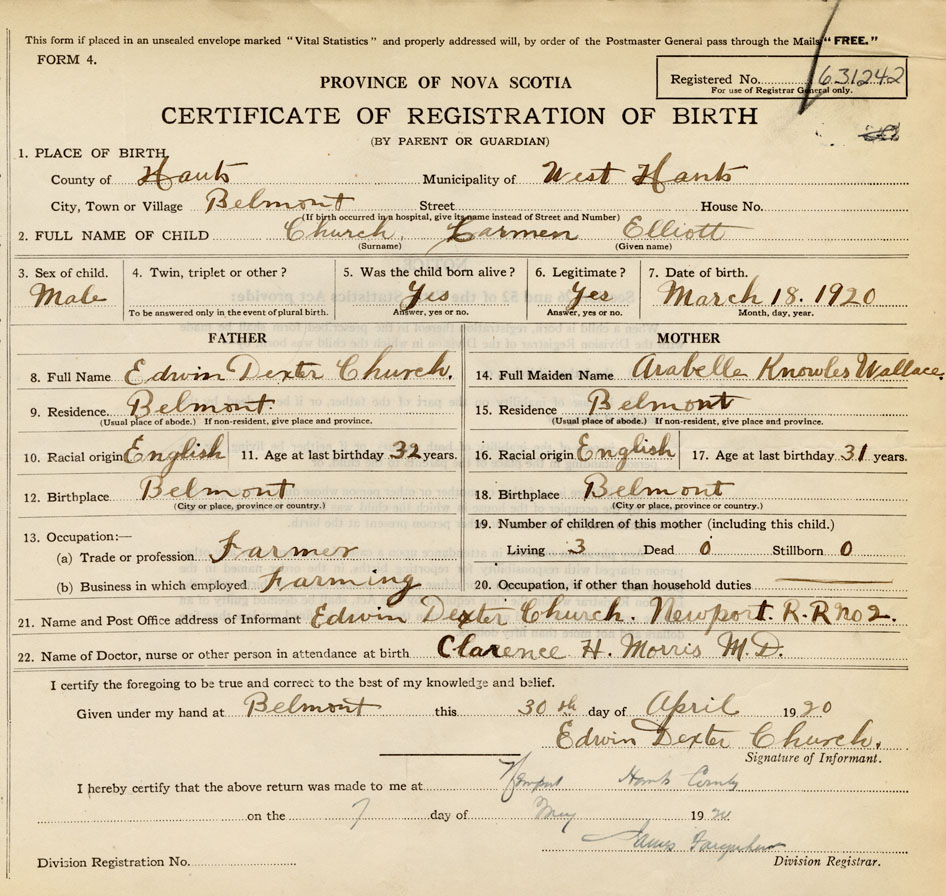 This form if placed in an unsealed envelope marked "Vital Statistics" and properly addressed will, by order of the Postmaster General pass through the Mails "FREE."
FORM 4.
PROVINCE OF NOVA SCOTIA
Registered No. 631242
For use of Registrar General only.
CERTIFICATE OF REGISTRATION OF BIRTH
(BY PARENT OR GUARDIAN)
1. PLACE OF BIRTH
County of Hants Municipality of West Hants
City, Town or Village Belmont Street House No.
(If birth occurred in a hospital, give its name instead of Street and Number)
2. FULL NAME OF CHILD Church, Larmen Elliott
(Surname) (Given name)
3. Sex of child. 4. Twin, triplet or other? 5. Was the child born alive? 6. Legitimate? 7. Date of birth.
Male Yes Yes March 18. 1920
To be answered only in the event of plural birth. Answer, yes or no. Answer, yes or no. Month, day, year.
FATHER MOTHER
8. Full Name Edwin Dexter Church. 14. Full Maiden Name Arabelle Knowles Wallace.
9. Residence Belmont. 15. Residence Belmont
(Usual place of abode.) If non-resident, give place and province. (Usual place of abode.) If non-resident, give place and province.
10. Racial origin English 11. Age at last birthday 32 years. 16. Racial origin English 17. Age at last birthday 31 years.
12. Birthplace Belmont 18. Birthplace Belmont
(City or place, province or country.) (City or place, province or country.)
13. Occupation:— 19. Number of children of this mother (including this child.)
(a) Trade or profession Farmer Living 3 Dead 0 Stillborn 0
(b) Business in which employed Farming 20. Occupation, if other than household duties
21. Name and Post Office address of Informant Edwin Dexter Church. Newport. R.R no 2.
22. Name of Doctor, nurse or other person in attendance at birth Clarence H. Morris M.D.
I certify the foregoing to be true and correct to the best of my knowledge and belief.
Given under my hand at Belmont this 30th day of April 1920
Edwin Dexter Church.
Signature of Informant.
I hereby certify that the above return was made to me at Newport Hants County
on the 7 day of May 1920
James Farquhar
Division Registration No. Division Registrar.